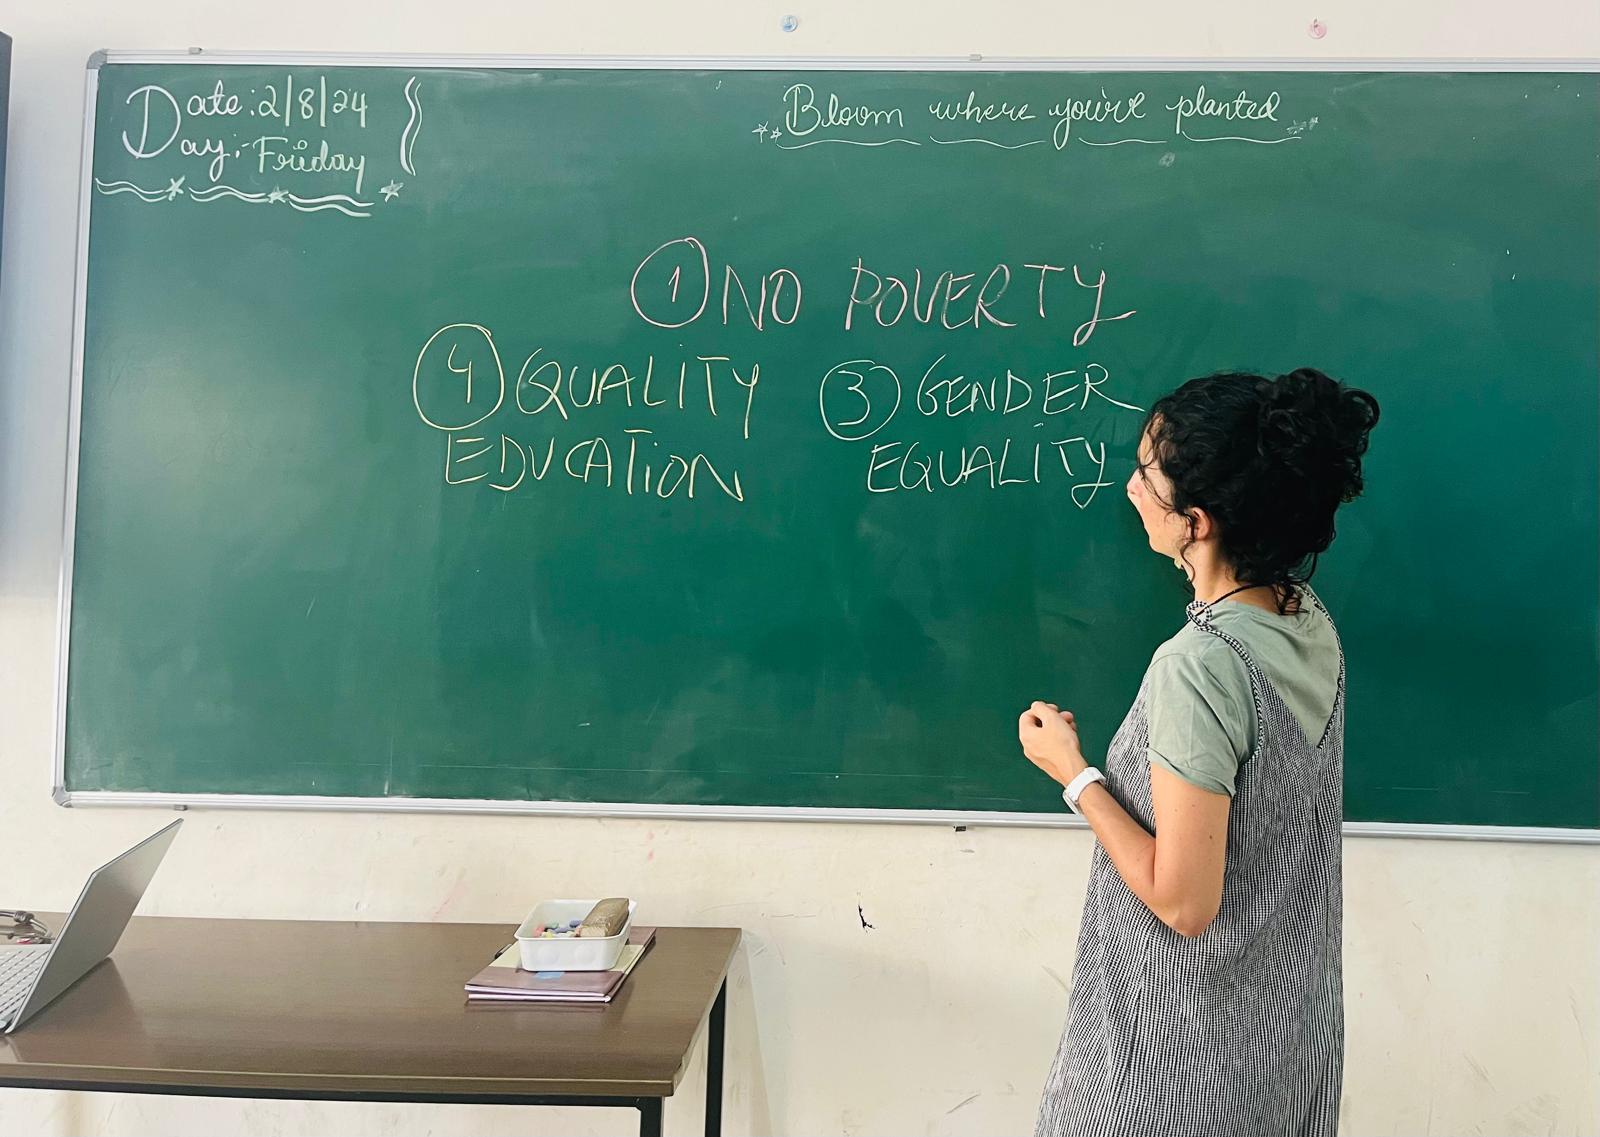 Date: 2/8/24
Day:- Friday
Bloom where you're planted
① NO POVERTY
④ QUALITY
EDUCATION
③ GENDER
EQUALITY